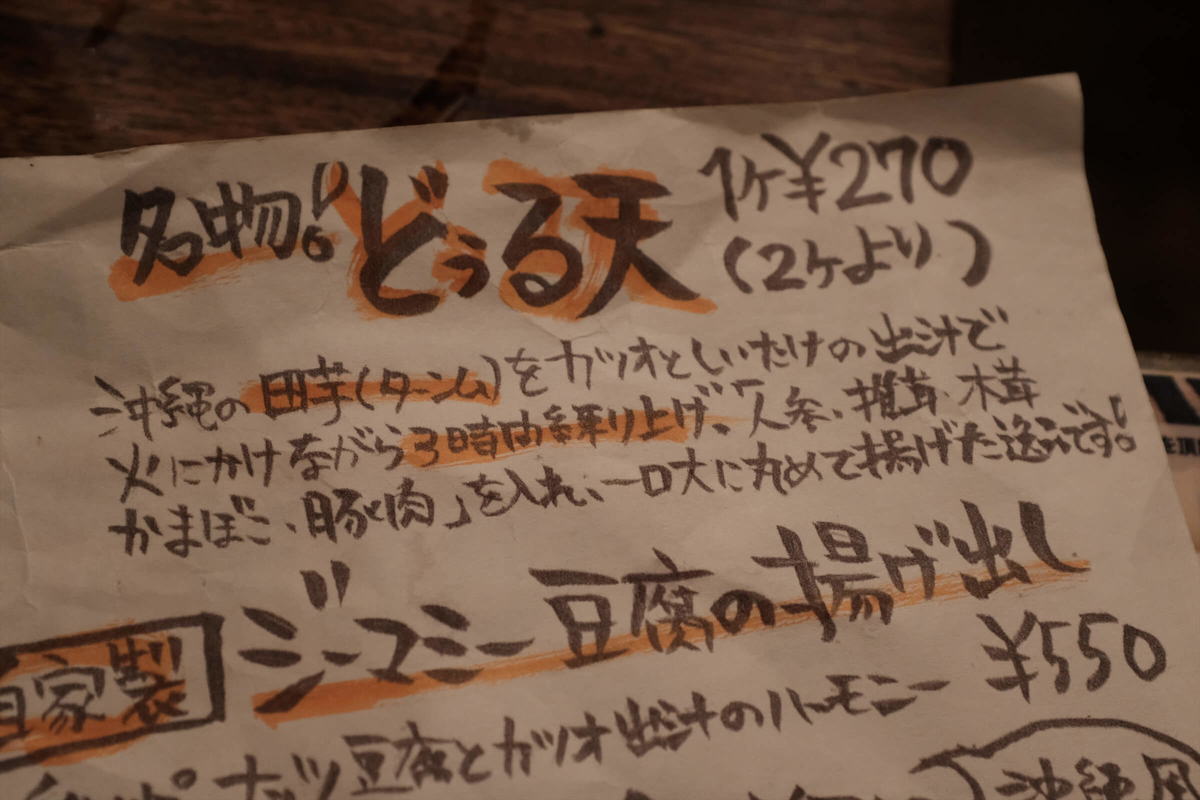 名物! どぅる天 1ヶ¥270
(2ヶより)
沖縄の田芋(ターンム)をカツオとしいたけの出汁で
火にかけながら3時間練り上げ、「人参、椎茸、木茸
かまぼこ、豚肉」を入れ、一口大に丸めて揚げた逸品です!
自家製 ジーマミー豆腐の揚げ出し
¥550
ナッツ豆腐とカツオ出汁のハーモニー
沖縄風